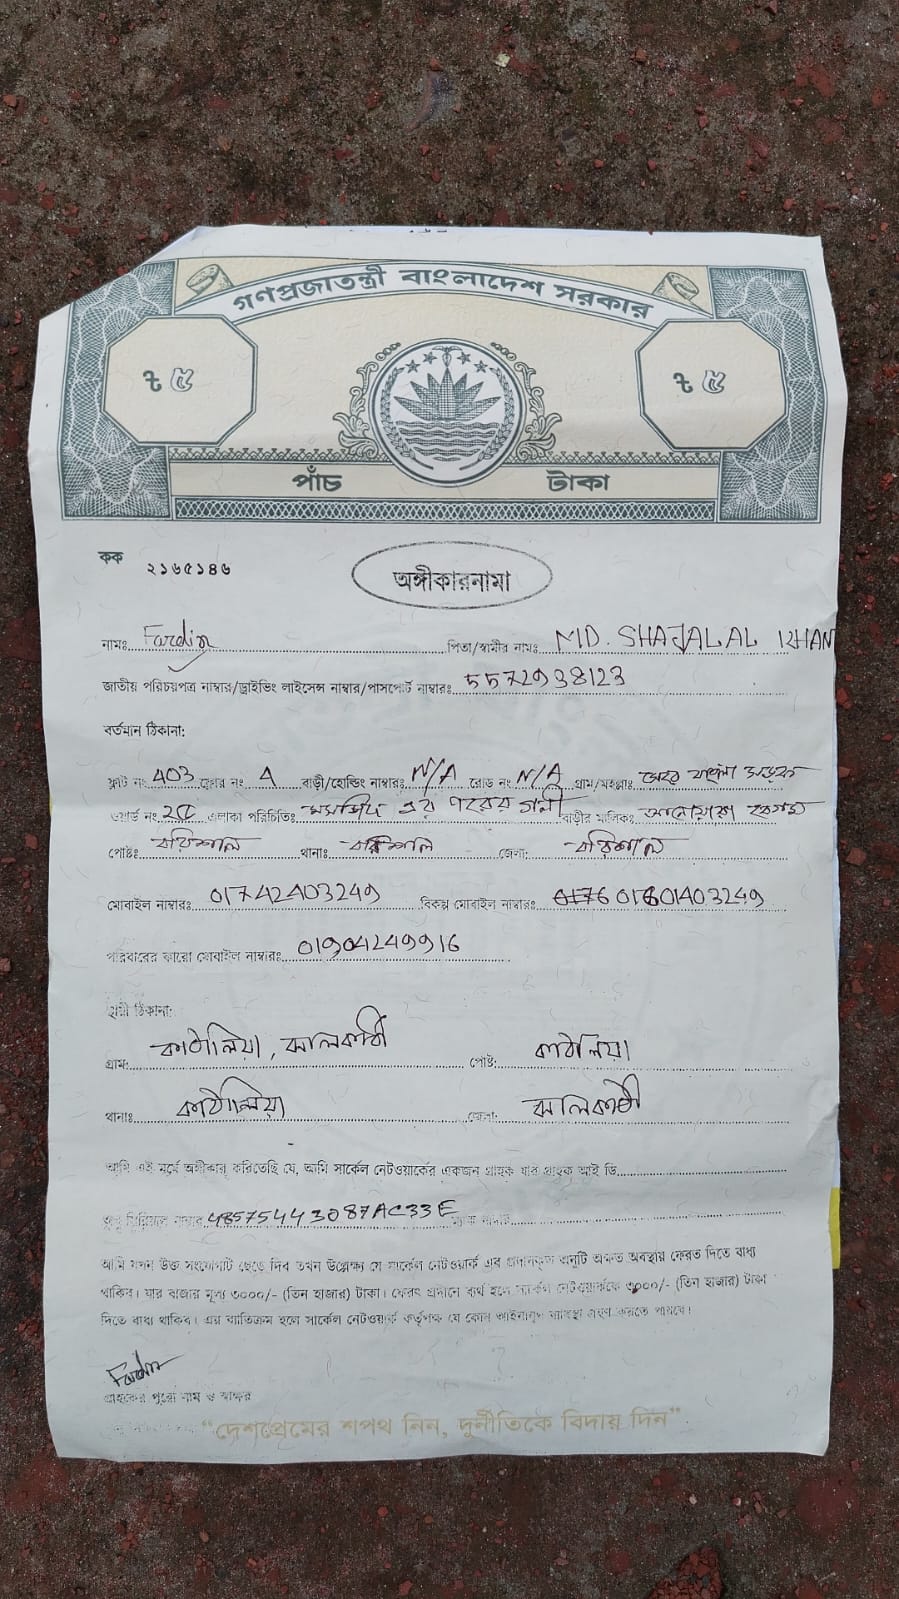 গণপ্রজাতন্ত্রী বাংলাদেশ সরকার
৳ ৫ ৳ ৫
পাঁচ টাকা
কক ২১৬৫১৪৬
অঙ্গীকারনামা
নামঃ Fardin পিতা/স্বামীর নামঃ MD. SHAJALAL KHAN
জাতীয় পরিচয়পত্র নাম্বার/ড্রাইভিং লাইসেন্স নাম্বার/পাসপোর্ট নাম্বারঃ 5572938123
বর্তমান ঠিকানা:
ফ্লাট নং 403 ফ্লোর নং 4 বাড়ী/হোল্ডিং নাম্বারঃ N/A রোড নং N/A গ্রাম/মহল্লাঃ বাংলা সড়ক
ওয়ার্ড নং এলাকা পরিচিতিঃ মসজিদ এর পরের গলী বাড়ীর মালিকঃ আনোয়ারা বেগম
পোষ্টঃ বরিশাল থানাঃ বরিশাল জেলা: বরিশাল
মোবাইল নাম্বারঃ 01742403249 বিকল্প মোবাইল নাম্বারঃ 01601403249
পরিবারের কারো মোবাইল নাম্বারঃ 01904249916
স্থায়ী ঠিকানা:
গ্রাম: কাঠালিয়া, ঝালকাঠী পোষ্ট: কাঠালিয়া
থানাঃ কাঠালিয়া জেলা: ঝালকাঠী
আমি এই মর্মে অঙ্গীকার করিতেছি যে, আমি সার্কেল নেটওয়ার্কের একজন গ্রাহক যার গ্রাহক আই ডি
অনু সিরিয়াল নাম্বার 48575443087AC33E ম্যাক আইডি
আমি যখন উক্ত সংযোগটি ছেড়ে দিব তখন উল্লেখ্য যে সার্কেল নেটওয়ার্ক এর প্রদানকৃত অনুটি অক্ষত অবস্থায় ফেরত দিতে বাধ্য
থাকিব। যার বাজার মূল্য ৩০০০/- (তিন হাজার) টাকা। ফেরৎ প্রদানে ব্যর্থ হলে সার্কেল নেটওয়ার্ককে ৩০০০/- (তিন হাজার) টাকা
দিতে বাধ্য থাকিব। এর ব্যতিক্রম হলে সার্কেল নেটওয়ার্ক কর্তৃপক্ষ যে কোন আইনানুগ ব্যবস্থা গ্রহণ করতে পারবে।
Fardin
গ্রাহকের পুরো নাম ও স্বাক্ষর
“দেশপ্রেমের শপথ নিন, দুর্নীতিকে বিদায় দিন”